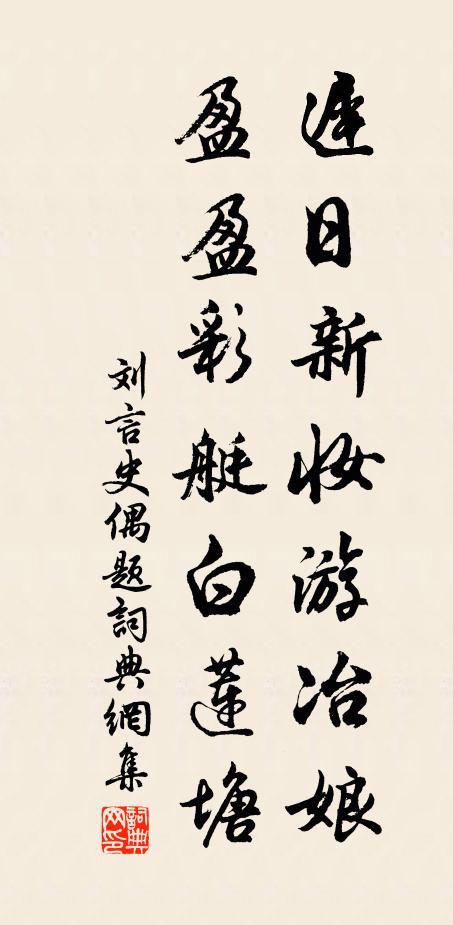 遲日新妝游冶娘
盈盈彩艇白蓮塘
刘言史偶题詞典網集
詞典网印